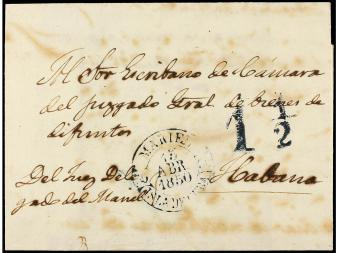 Al Sor Escribano de Cámara
del juzgado Gral de bienes de
difuntos
1 1/2
MARIEL
15
ABR
1850
ISLA DE CUBA
Del Juez Dele
gado del Mariel
Habana